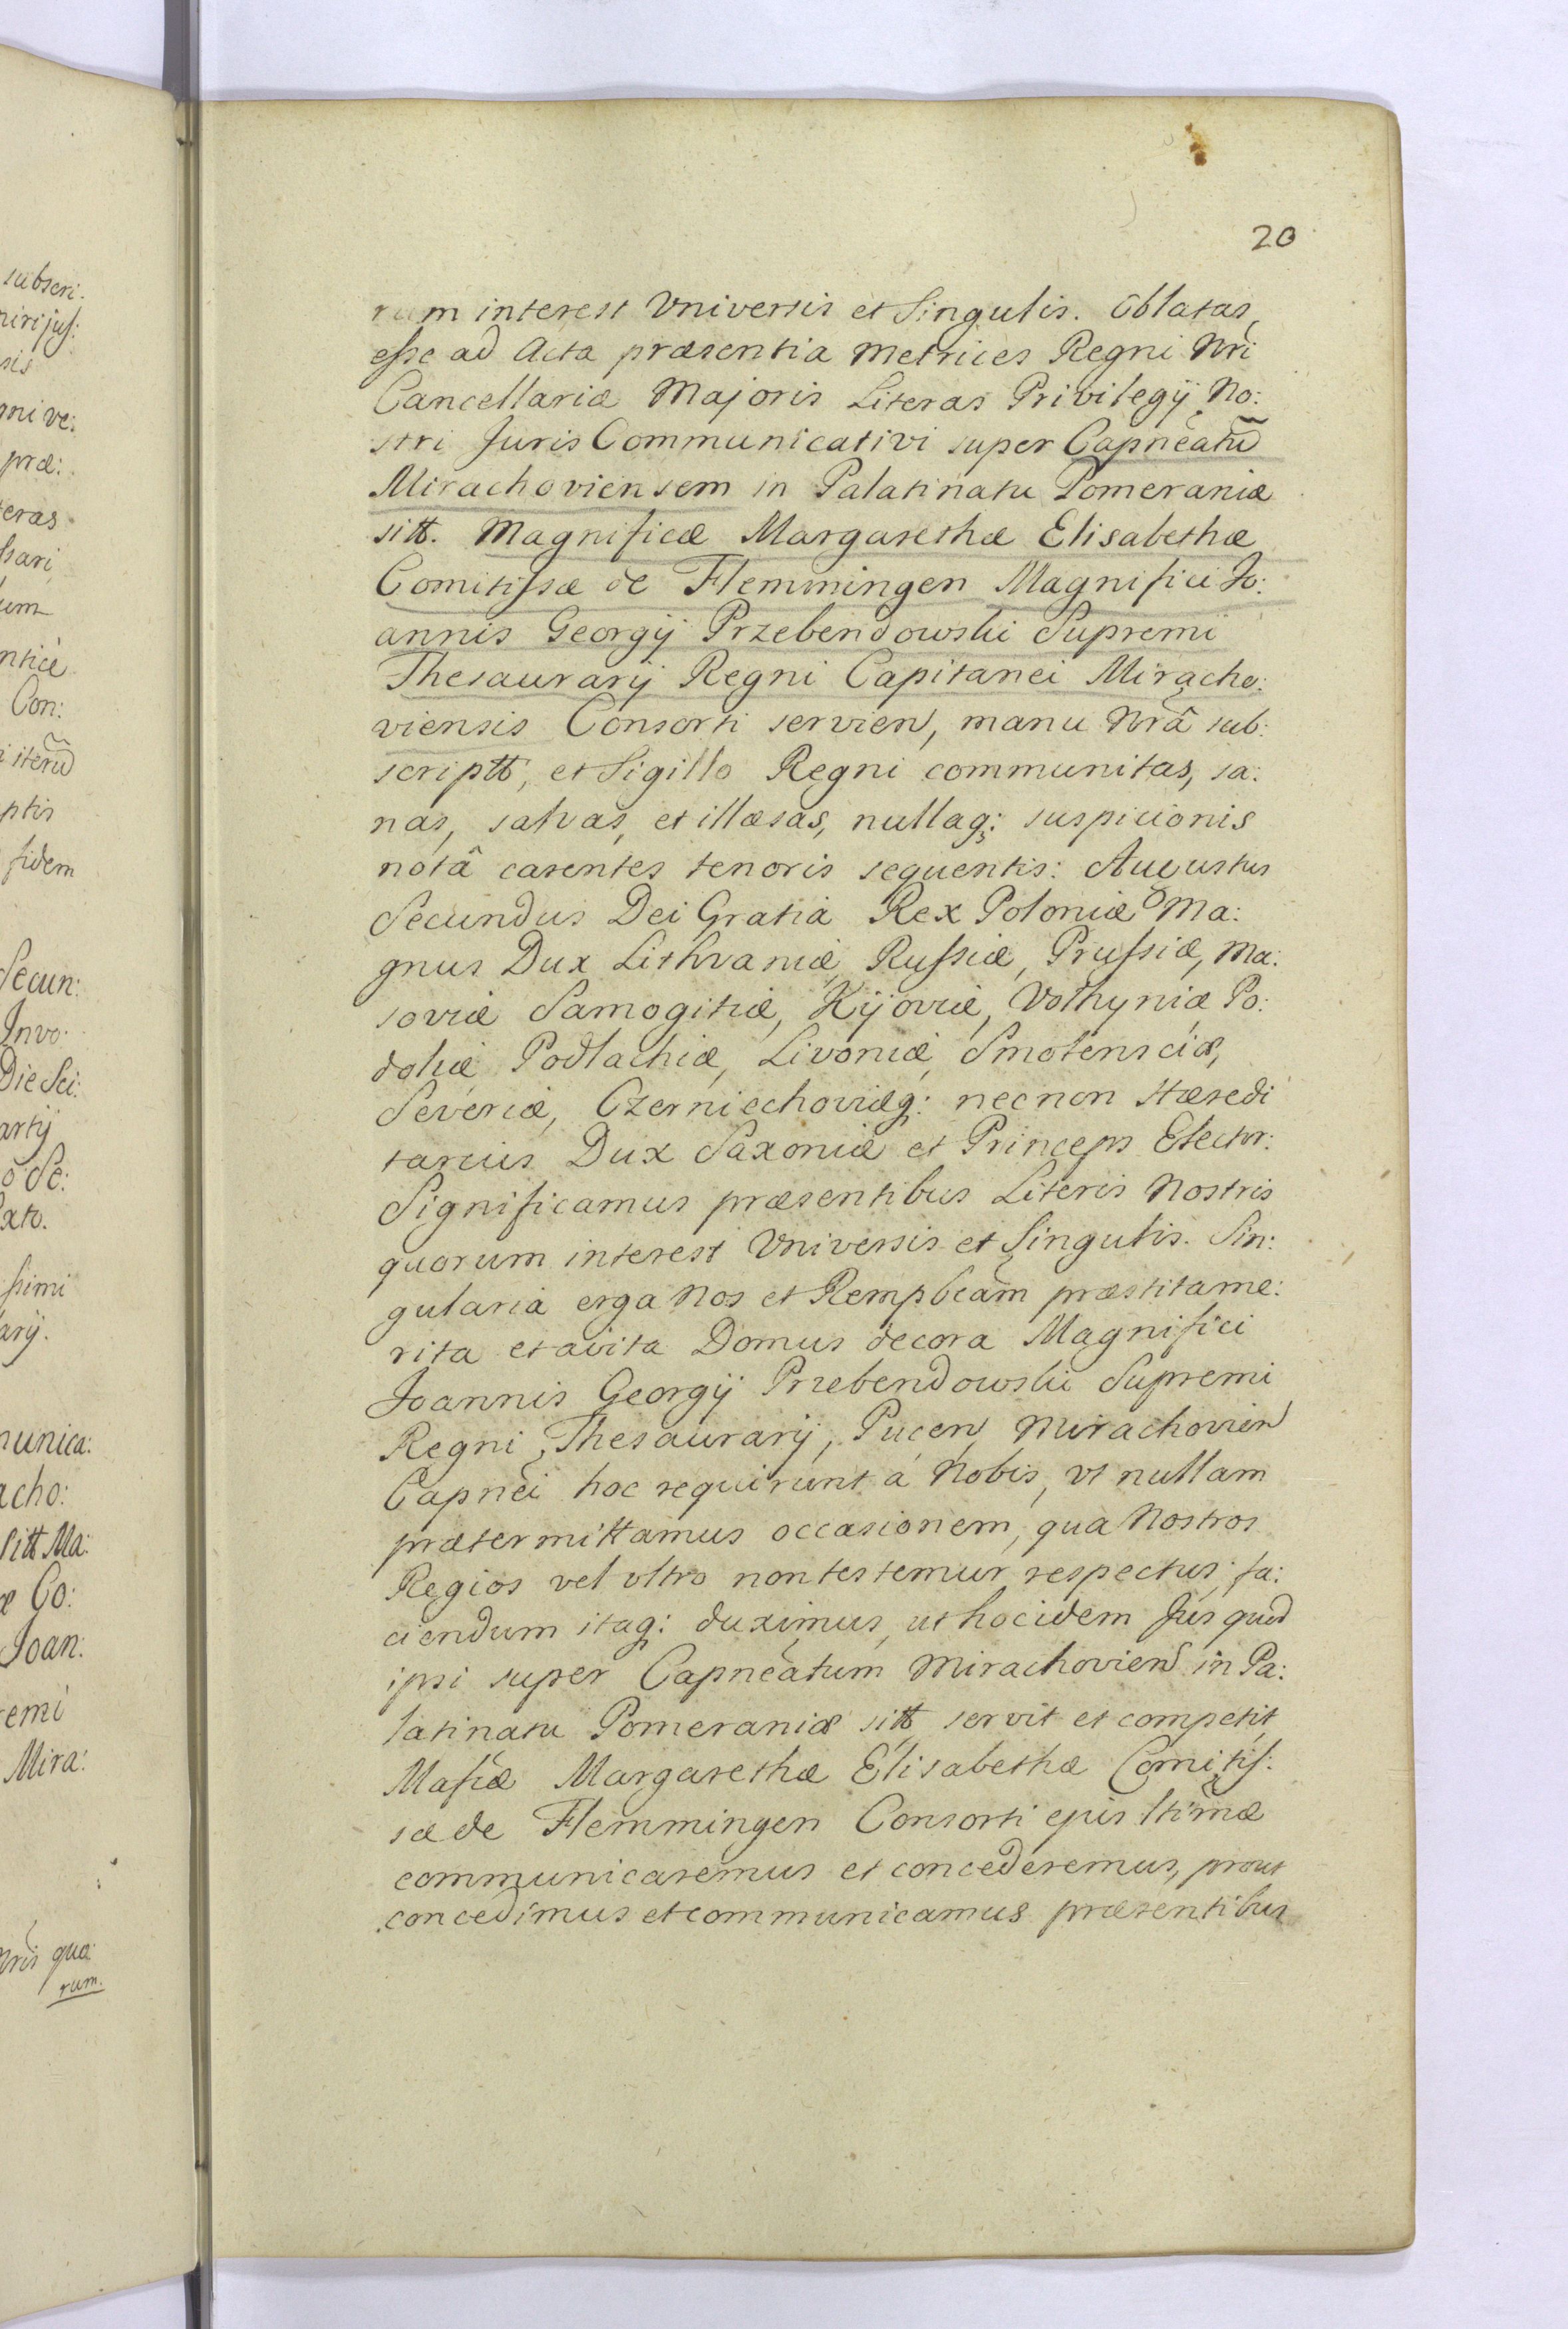 subscri:
niri jus:
sis
gni ve:
præ:
teras
ssari
um
nticè
Con:
i iterũ
ptis
fidem
Secun:
Invo:
Die Sci:
artij
o Se:
xto.
ssimi
arij.
munica:
acho:
sitt Ma:
æ Co:
Joan:
remi
Mira:
nris quo:
rum.
20
rum interest Vniversis et Singulis. Oblatas
esse ad Acta præsentia Metrices Regni Nri
Cancellariæ Majoris Literas Privilegij No:
stri Juris Communicativi super Capneatũ
Mirachoviensem in Palatinatu Pomeraniæ
sitt. Magnificæ Margarethæ Elisabethæ
Comitissæ de Flemmingen Magnifici Jo:
annis Georgij Przebendowski Supremi
Thesaurarij Regni Capitanei Miracho:
viensis Consorti servien, manu Nrâ sub:
scriptt, et Sigillo Regni communitas, sa:
nas, salvas, et illæsas, nullaq; suspicionis
notâ carentes tenoris sequentis: Augustus
Secundus Dei Gratiâ Rex Poloniæ Ma:
gnus Dux Lithvaniæ, Russiæ, Prussiæ, Ma:
soviæ Samogitiæ, Kijoviæ, Volhyniæ Po:
doliæ Podlachiæ, Livoniæ, Smolensciæ,
Severiæ, Czerniechoviæq: necnon Hæredi
tarius Dux Saxoniæ et Princeps Elector:
Significamus præsentibus Literis Nostris
quorum interest Vniversis et Singulis. Sin:
gularia erga Nos et Rempbcam præstita me:
rita et avita Domus decora Magnifici
Joannis Georgij Przebendowski Supremi
Regni Thesaurarij, Pucen, Mirachovien
Capnei hoc requirunt á Nobis, vt nullam
prætermittamus occasionem, qua Nostros
Regios vel vltro non testemur respectus, fa:
ciendum itaq: duximus, ut hoc idem Jus quod
ipsi super Capneatum Mirachovien in Pa:
latinatu Pomeraniæ sitt servit et competit
Mafcæ Margarethæ Elisabethæ Comitis:
sæ de Flemmingen Consorti ejus ltimæ
communicaremus et concederemus, prout
concedimus et communicamus præsentibus